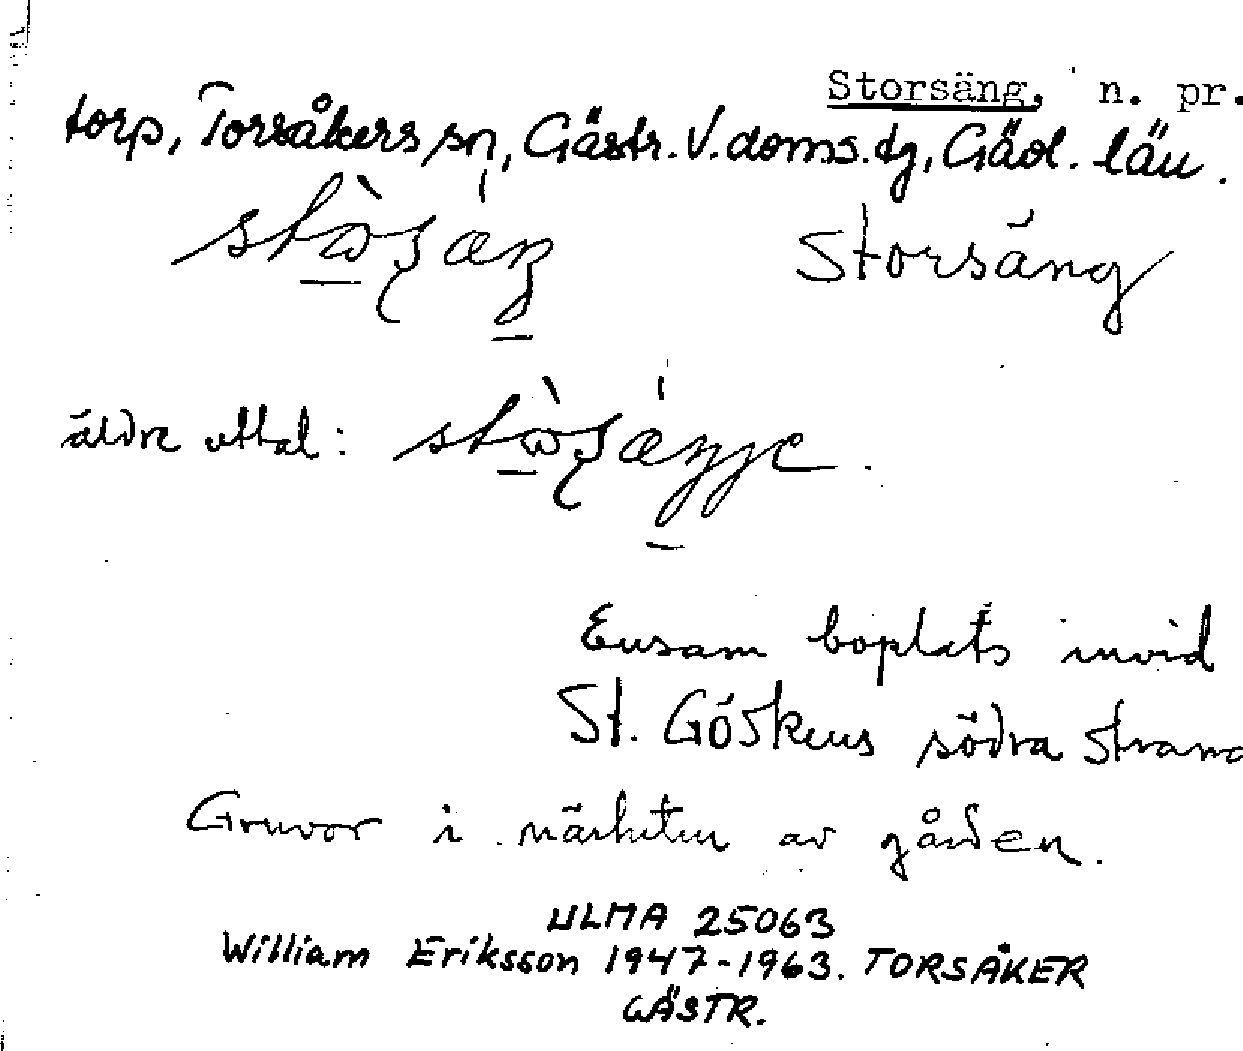 Storsäng, n. pr.
torp, Torsåkers sn, Gästr. V. doms. dg, Gävl. län.
Storsäng
äldre uttal:
Ensam boplats invid
St. Göskens södra strand
Gruvor i närheten av gården.
ULMA 25063
William Eriksson 1947-1963. TORSÅKER
GÄSTR.